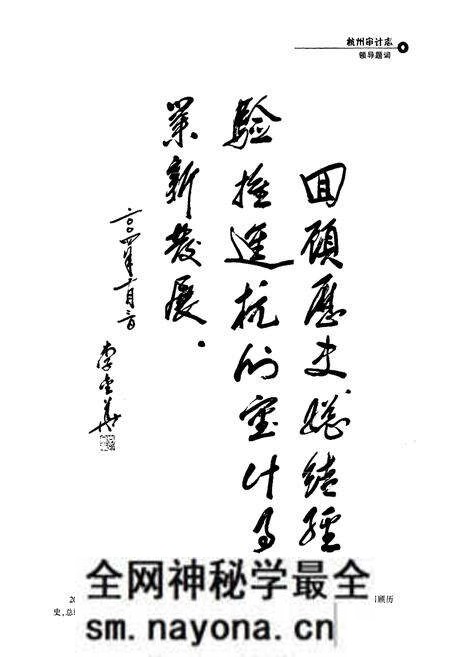 杭州审计志
领导题词
回顾历史总结经
验推进杭州审计事
业新发展.
二〇〇四年十月三日
李金华
20
顾历
史,总
全网神秘学最全
sm.nayona.cn